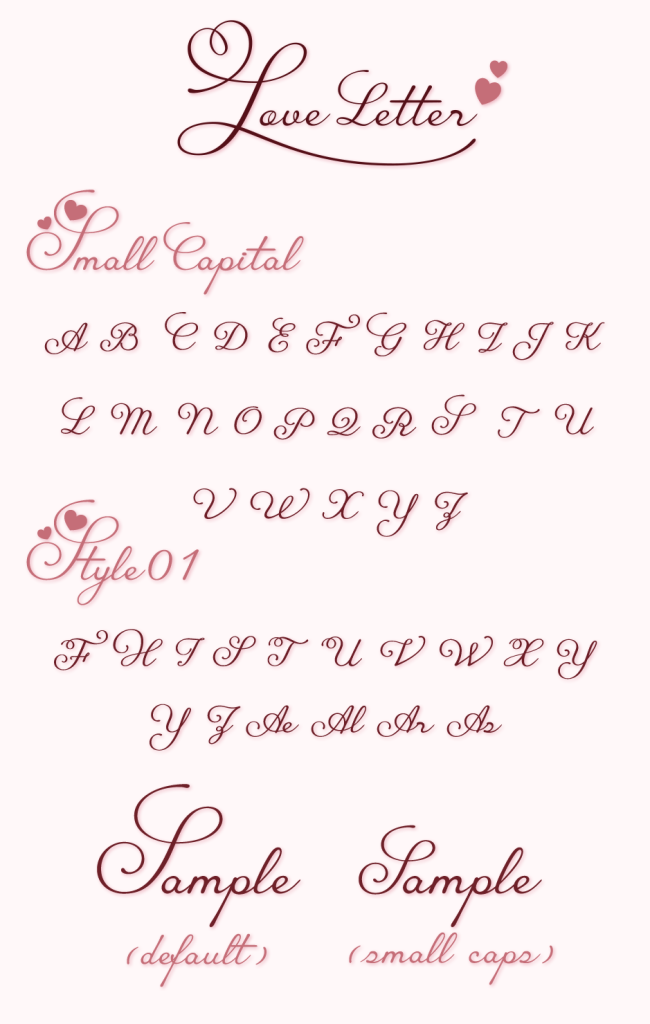 Love Letter
Small Capital
A B C D E F G H I J K
L M N O P Q R S T U
V W X Y Z
Style 01
F H I S T U V W X Y
Y Z Ae Al Ar As
Sample Sample
(default) (small caps)